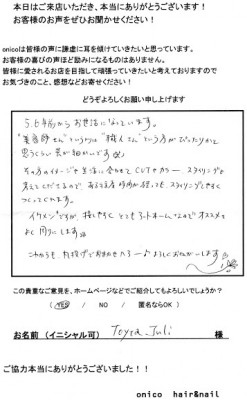 本日はご来店いただき、本当にありがとうございます！
お客様のお声をぜひお聞かせください！
onicoは皆様の声に謙虚に耳を傾けていきたいと思っています。
お客様の喜びの声ほど励みになるものはありません。
皆様に愛されるお店を目指して頑張っていきたいと考えておりますので
お気づきのこと、感想などお寄せください！
どうぞよろしくお願い申し上げます
5.6年前からお世話になっています。
"美容師さん"というより"職人さん"という方がぴったりだと
思うくらい芸が細かいです
その方のイメージや生活に合わせてCUTやカラー スタイリングを
考えてくださるので ある程度時間が経っても、スタイリングしやすく
つくってくれます。
イケメンですが、接しやすく とてもアットホームなので オススメを
よく聞いてします
これからも 丸投げでおまかせしたろー♪よろしくおねがいします
この貴重なご意見を、ホームページなどでご紹介してもよろしいでしょうか？
YES / NO / 匿名ならOK )
お名前 (イニシャル可) 様
ご協力本当にありがとうございました！！
onico hair&nail